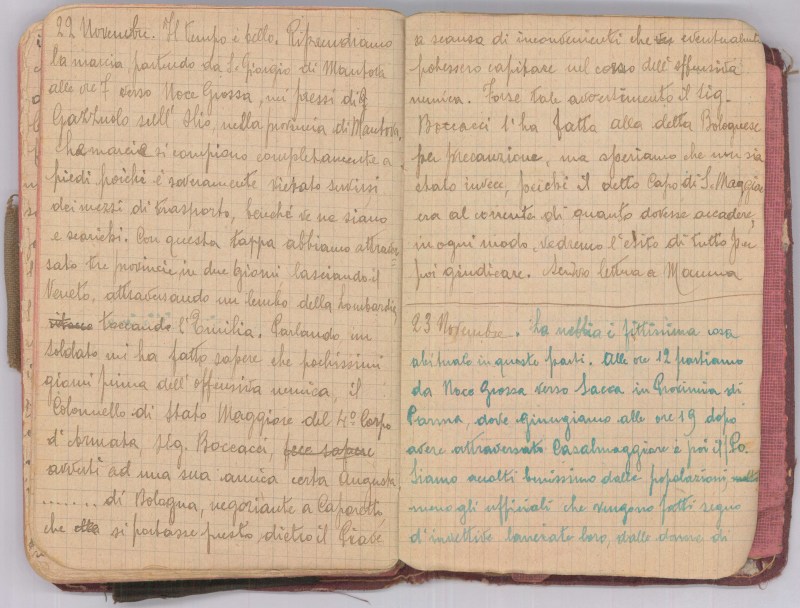 22 Novembre. Il tempo è bello. Riprendiamo
la marcia partendo da S. Giorgio di Mantova
alle ore 7 verso Noce Grossa, nei pressi di
Gazzuolo sull' Olio, nella provincia di Mantova.
La marcia si compiono completamente a
piedi poiché è severamente vietato servirsi
dei mezzi di trasporto, benché ve ne siano
e scarichi. Con questa tappa abbiamo attraver-
sato tre provincie in due giorni lasciando il
Veneto, attraversando un lembo della Lombardia,
toccando l'Emilia. Parlando un
soldato mi ha fatto sapere che pochissimi
giorni prima dell'offensiva nemica, il
Colonnello di Stato Maggiore del 4° Corpo
d'Armata, Sig. Boccacci, fece sapere
avvertì ad una sua amica certa Augusta
........ di Bologna, negoziante a Caporetto
che si portasse presto dietro il Piave
a scanso di inconvenienti che eventualmente
potessero capitare nel corso dell'offensiva
nemica. Forse tale avvertimento il Sig.
Boccacci l'ha fatta alla detta Bolognese
per precauzione, ma speriamo che non sia
stato invece, perché il detto Capo di S. Maggiore
era al corrente di quanto dovesse accadere,
in ogni modo, vedremo l'esito di tutto per
poi giudicare. Scrivo lettera a Mamma
23 Novembre. La nebbia è fittissima cosa
abituale in queste parti. Alle ore 12 partiamo
da Noce Grossa verso Sacca in Provincia di
Parma, dove giungiamo alle ore 19 dopo
avere attraversato Casalmaggiore e poi il Po.
Siamo accolti benissimo dalle popolazioni,
meno gli ufficiali che vengono fatti segno
d'invettive lanciate loro, dalle donne di